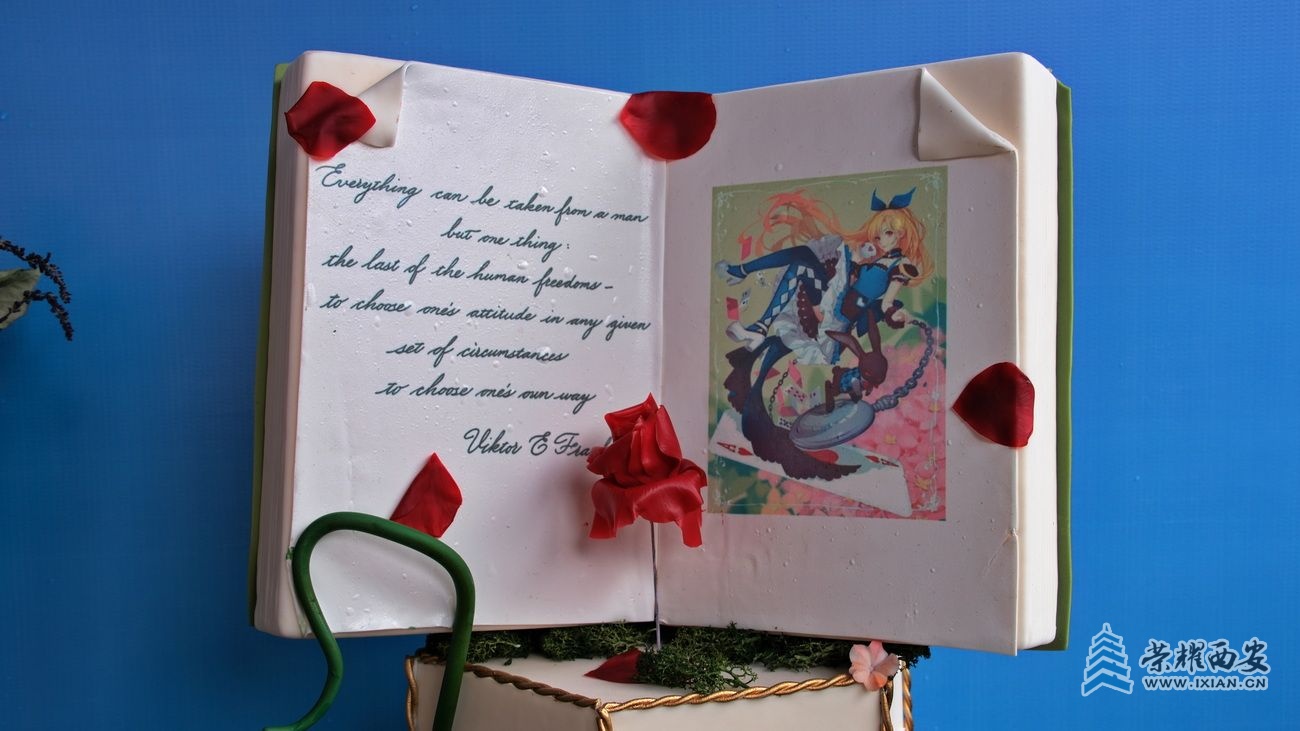 Everything can be taken from a man
but one thing:
the last of the human freedoms -
to choose one's attitude in any given
set of circumstances
to choose one's own way
Viktor E
荣耀西安
WWW.IXIAN.CN